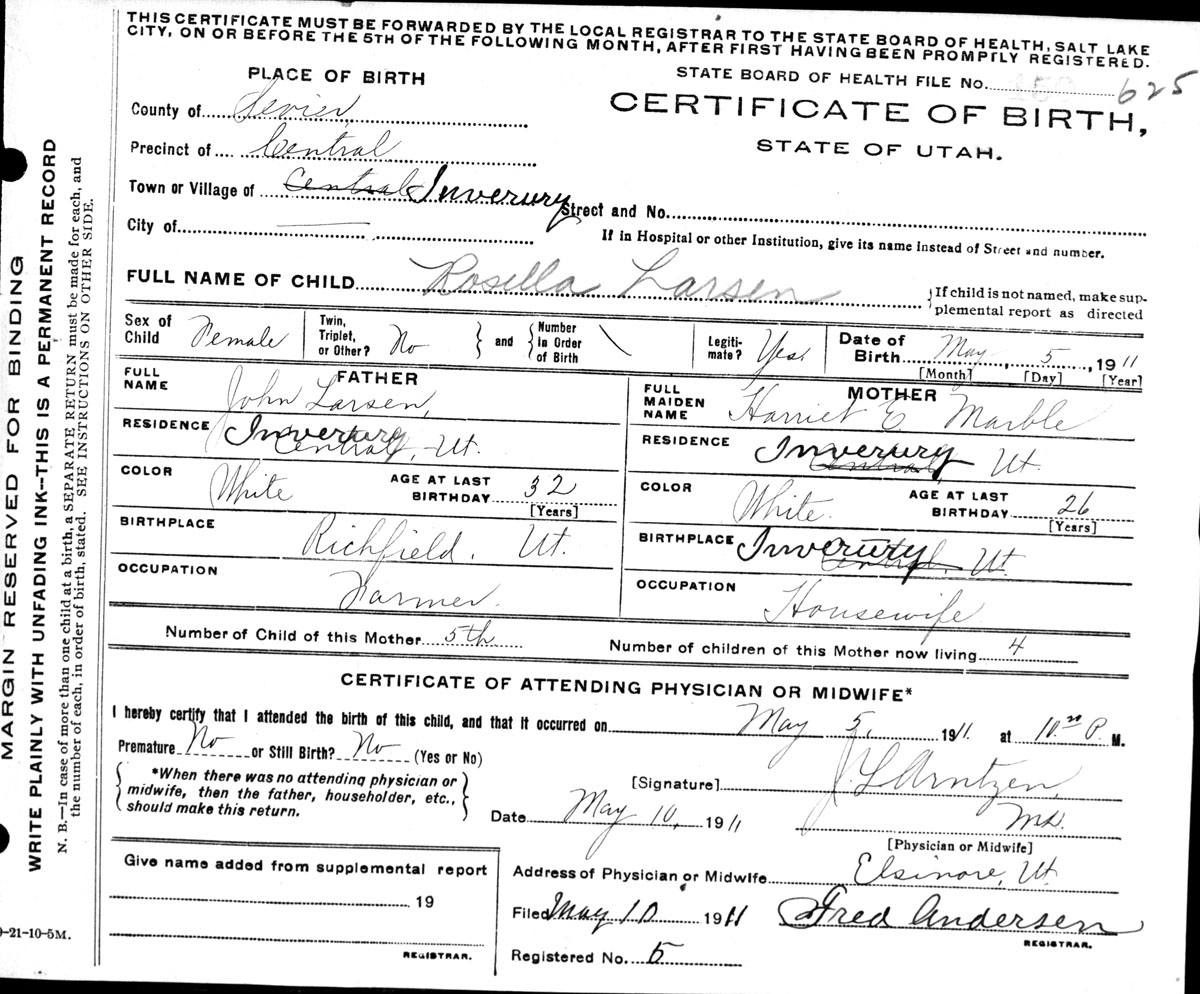 THIS CERTIFICATE MUST BE FORWARDED BY THE LOCAL REGISTRAR TO THE STATE BOARD OF HEALTH, SALT LAKE
CITY, ON OR BEFORE THE 5TH OF THE FOLLOWING MONTH, AFTER FIRST HAVING BEEN PROMPTLY REGISTERED.
PLACE OF BIRTH
STATE BOARD OF HEALTH FILE No. 625
County of Sevier
CERTIFICATE OF BIRTH,
Precinct of Central
STATE OF UTAH.
Town or Village of Central Inverury Street and No.
City of —
If in Hospital or other Institution, give its name instead of Street and number.
FULL NAME OF CHILD Rosella Larsen
{If child is not named, make sup-
plemental report as directed
Sex of Child Female
Twin, Triplet, or Other? No } and { Number in Order of Birth \
Legiti- mate? Yes
Date of Birth May 5, 1911
[Month] [Day] [Year]
FATHER
FULL NAME John Larsen,
RESIDENCE Inverury Central, Ut.
COLOR White AGE AT LAST BIRTHDAY 32
[Years]
BIRTHPLACE Richfield. Ut.
OCCUPATION Farmer.
MOTHER
FULL MAIDEN NAME Harriet E Marble
RESIDENCE Inverury Central, Ut.
COLOR White. AGE AT LAST BIRTHDAY 26
[Years]
BIRTHPLACE Inverury Central, Ut
OCCUPATION Housewife
Number of Child of this Mother 5th
Number of children of this Mother now living 4
CERTIFICATE OF ATTENDING PHYSICIAN OR MIDWIFE*
I hereby certify that I attended the birth of this child, and that it occurred on May 5, 1911. at 10. P. M.
Premature No or Still Birth? No (Yes or No)
{*When there was no attending physician or
midwife, then the father, householder, etc.,
should make this return.}
[Signature] J. L Arntzen,
Date May 10, 1911 MD.
[Physician or Midwife]
Address of Physician or Midwife Elsinore, Ut.
Filed May 10 1911 Fred Andersen
REGISTRAR.
Registered No. 5
Give name added from supplemental report
19
REGISTRAR.
9-21-10-5M.
MARGIN RESERVED FOR BINDING
WRITE PLAINLY WITH UNFADING INK--THIS IS A PERMANENT RECORD
N. B.—In case of more than one child at a birth, a SEPARATE RETURN must be made for each, and
the number of each, in order of birth, stated. SEE INSTRUCTIONS ON OTHER SIDE.